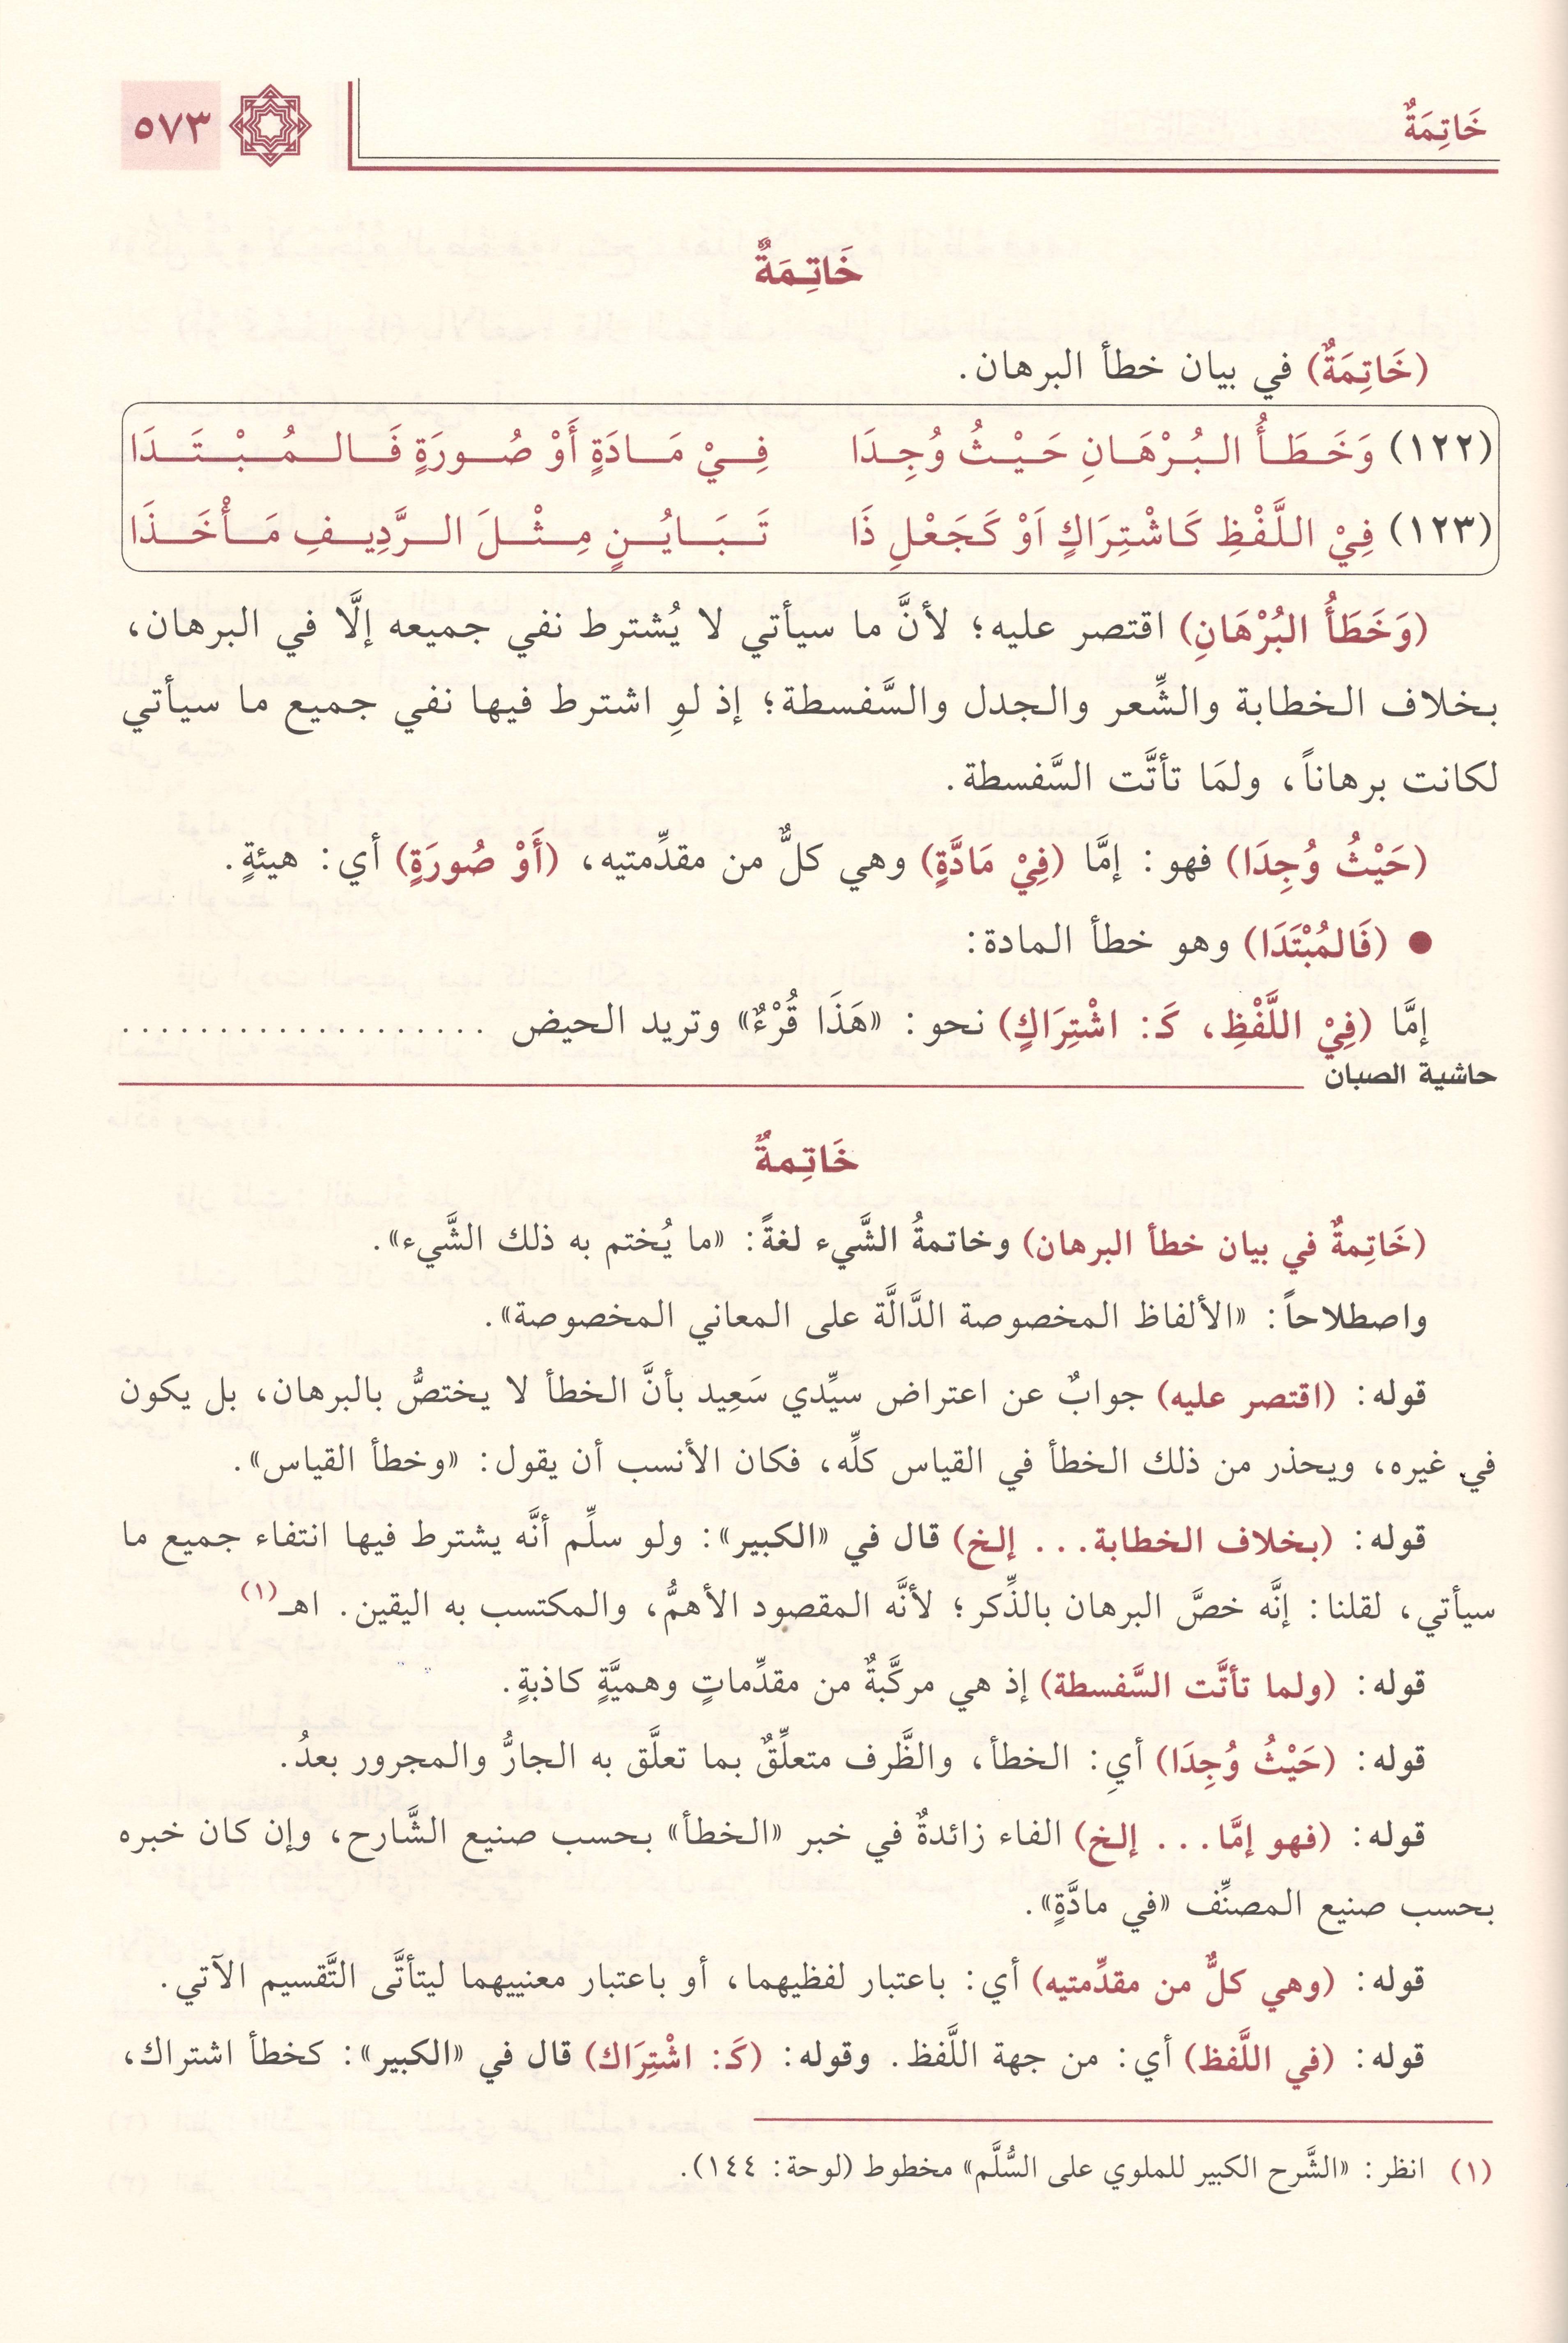 خَاتِمَةٌ
٥٧٣
خَاتِمَةٌ
(خَاتِمَةٌ) في بيان خطأ البرهان.
(١٢٢) وَخَطَأُ البُرْهَانِ حَيْثُ وُجِدَا فِيْ مَادَةٍ أَوْ صُورَةٍ فَالمُبْتَدَا
(١٢٣) فِيْ اللَّفْظِ كَاشْتِرَاكٍ اَوْ كَجَعْلِ ذَا تَبَايُنٍ مِثْلَ الرَّدِيفِ مَأْخَذَا
(وَخَطَأُ البُرْهَانِ) اقتصر عليه؛ لأنَّ ما سيأتي لا يُشترط نفي جميعه إلَّا في البرهان،
بخلاف الخطابة والشِّعر والجدل والسَّفسطة؛ إذ لوِ اشترط فيها نفي جميع ما سيأتي
لكانت برهاناً، ولمَا تأتَّت السَّفسطة.
(حَيْثُ وُجِدَا) فهو: إمَّا (فِيْ مَادَّةٍ) وهي كلٌّ من مقدِّمتيه، (أَوْ صُورَةٍ) أي: هيئةٍ.
● (فَالمُبْتَدَا) وهو خطأ المادة:
إمَّا (فِيْ اللَّفْظِ، كَـ: اشْتِرَاكٍ) نحو: «هَذَا قُرْءٌ» وتريد الحيض ...................
حاشية الصبان
خَاتِمةٌ
(خَاتِمةٌ في بيان خطأ البرهان) وخاتمةُ الشَّيء لغةً: «ما يُختم به ذلك الشَّيء».
واصطلاحاً: «الألفاظ المخصوصة الدَّالَّة على المعاني المخصوصة».
قوله: (اقتصر عليه) جوابٌ عن اعتراض سيِّدي سَعِيد بأنَّ الخطأ لا يختصُّ بالبرهان، بل يكون
في غيره، ويحذر من ذلك الخطأ في القياس كلِّه، فكان الأنسب أن يقول: «وخطأ القياس».
قوله: (بخلاف الخطابة... إلخ) قال في «الكبير»: ولو سلِّم أنَّه يشترط فيها انتفاء جميع ما
سيأتي، لقلنا: إنَّه خصَّ البرهان بالذِّكر؛ لأنَّه المقصود الأهمُّ، والمكتسب به اليقين. اهـ(١)
قوله: (ولما تأتَّت السَّفسطة) إذ هي مركَّبةٌ من مقدِّماتٍ وهميَّةٍ كاذبةٍ.
قوله: (حَيْثُ وُجِدَا) أيِ: الخطأ، والظَّرف متعلِّقٌ بما تعلَّق به الجارُّ والمجرور بعدُ.
قوله: (فهو إمَّا... إلخ) الفاء زائدةٌ في خبر «الخطأ» بحسب صنيع الشَّارح، وإن كان خبره
بحسب صنيع المصنِّف «في مادَّةٍ».
قوله: (وهي كلٌّ من مقدِّمتيه) أي: باعتبار لفظيهما، أو باعتبار معنييهما ليتأتَّى التَّقسيم الآتي.
قوله: (في اللَّفظ) أي: من جهة اللَّفظ. وقوله: (كَـ: اشْتِرَاك) قال في «الكبير»: كخطأ اشتراك،
(١) انظر: «الشَّرح الكبير للملوي على السُّلَّم» مخطوط (لوحة: ١٤٤).